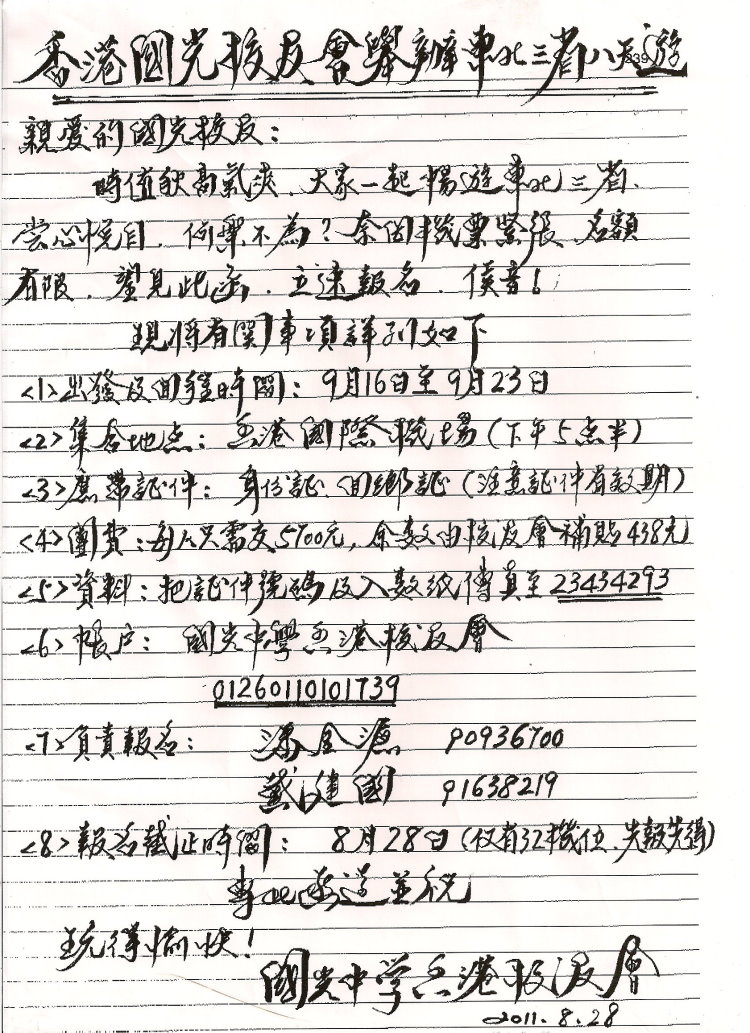 香港國光校友會舉辦東北三省八天遊
親愛的國光校友：
時值秋高氣爽．大家一起暢遊東北三省．
賞心悅目．何樂不為？奈因機票緊張．名額
有限．望見此函．立速報名．候音！
現將有関事項詳列如下
<1>出發及囬程時間：9月16日至9月23日
<2>集合地点：香港國際機場(下午5点半)
<3>應帶証件：身份証．囬鄉証(注意証件有效期)
<4>團費：每人只需交5700元，余数由校友會補貼438元
<5>資料：把証件號碼及入数紙傳真至23434293
<6>帳户：國光中學香港校友會
01260110101739
<7>負責報名：潘金源 90936700
戴建國 91638219
<8>報名截止時間：8月28日(仅有32機位．先報先得)
專此函達並祝
玩得愉快！
國光中学香港校友會
2011.8.28